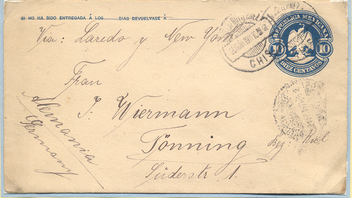 SI NO HA SIDO ENTREGADA Á LOS DIAS DEVUELVASE Á
Via: Laredo y New York
REPUBLICA MEXICANA
10 10
DIEZ CENTAVOS
CHIS
Frau
J. Wiermann
Tönning
Süderstr. 1.
Alemania
Germany